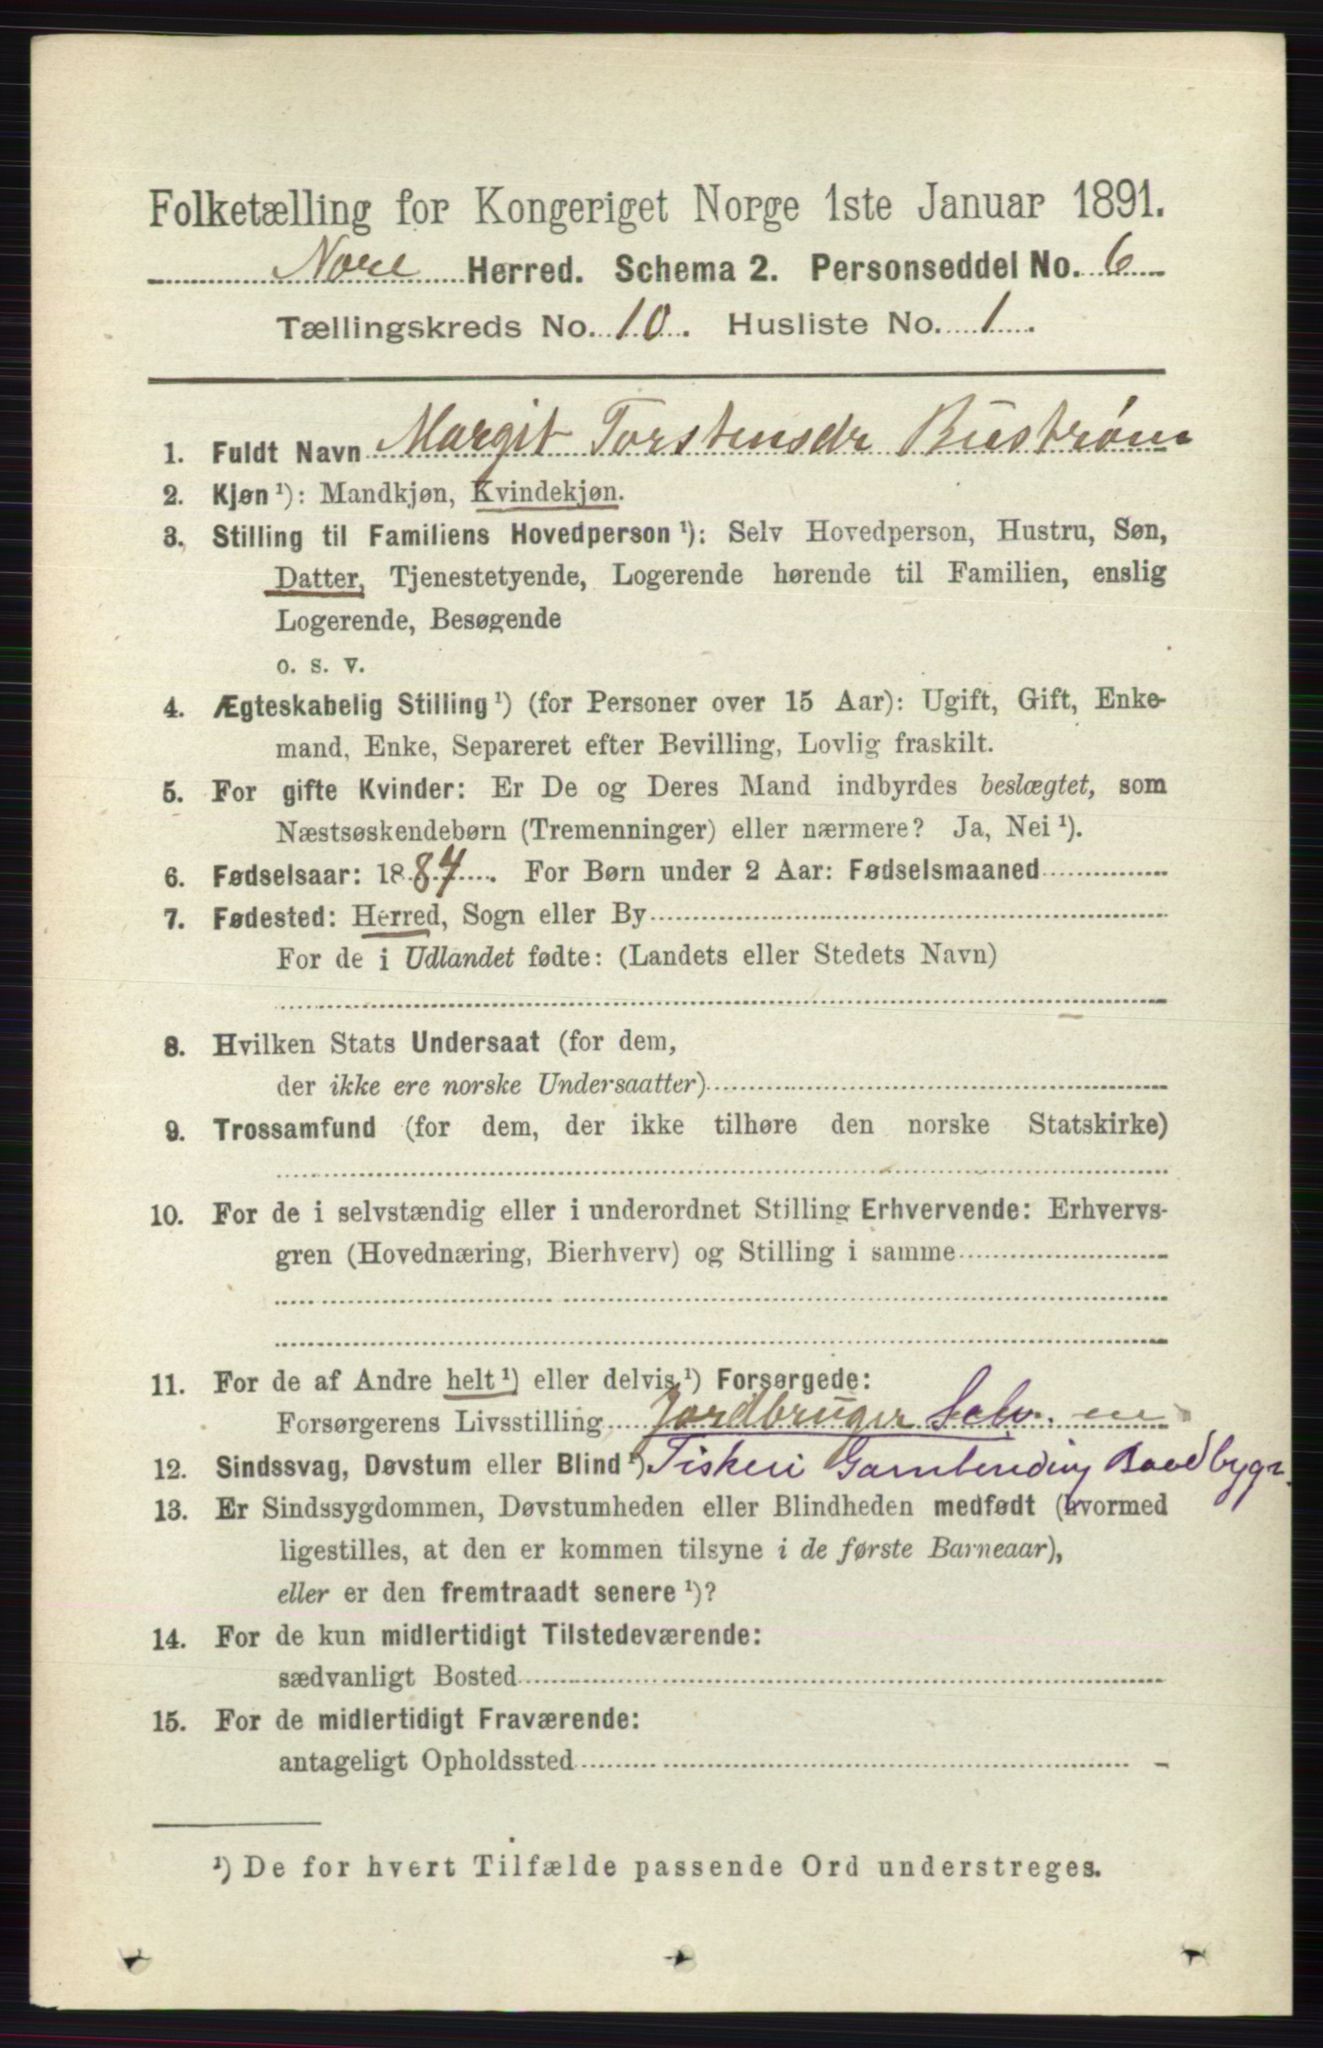 Folketælling for Kongeriget Norge 1ste Januar 1891.
Nore Herred. Schema 2. Personseddel No. 6
Tællingskreds No. 10. Husliste No. 1.
1. Fuldt Navn Margit Torstensdr Bustrøm
2. Kjøn ¹): Mandkjøn, Kvindekjøn.
3. Stilling til Familiens Hovedperson ¹): Selv Hovedperson, Hustru, Søn,
Datter, Tjenestetyende, Logerende hørende til Familien, enslig
Logerende, Besøgende
o. s. v.
4. Ægteskabelig Stilling ¹) (for Personer over 15 Aar): Ugift, Gift, Enke-
mand, Enke, Separeret efter Bevilling, Lovlig fraskilt.
5. For gifte Kvinder: Er De og Deres Mand indbyrdes beslægtet, som
Næstsøskendebørn (Tremenninger) eller nærmere? Ja, Nei ¹).
6. Fødselsaar: 1887. For Børn under 2 Aar: Fødselsmaaned
7. Fødested: Herred, Sogn eller By
For de i Udlandet fødte: (Landets eller Stedets Navn)
8. Hvilken Stats Undersaat (for dem,
der ikke ere norske Undersaatter)
9. Trossamfund (for dem, der ikke tilhøre den norske Statskirke)
10. For de i selvstændig eller i underordnet Stilling Erhvervende: Erhvervs-
gren (Hovednæring, Bierhverv) og Stilling i samme
11. For de af Andre helt ¹) eller delvis ¹) Forsørgede:
Forsørgerens Livsstilling Jordbruger Selv.
12. Sindssvag, Døvstum eller Blind ¹) Fiskeri Baadbygr.
13. Er Sindssygdommen, Døvstumheden eller Blindheden medfødt (hvormed
ligestilles, at den er kommen tilsyne i de første Barneaar),
eller er den fremtraadt senere ¹)?
14. For de kun midlertidigt Tilstedeværende:
sædvanligt Bosted
15. For de midlertidigt Fraværende:
antageligt Opholdssted
¹) De for hvert Tilfælde passende Ord understreges.